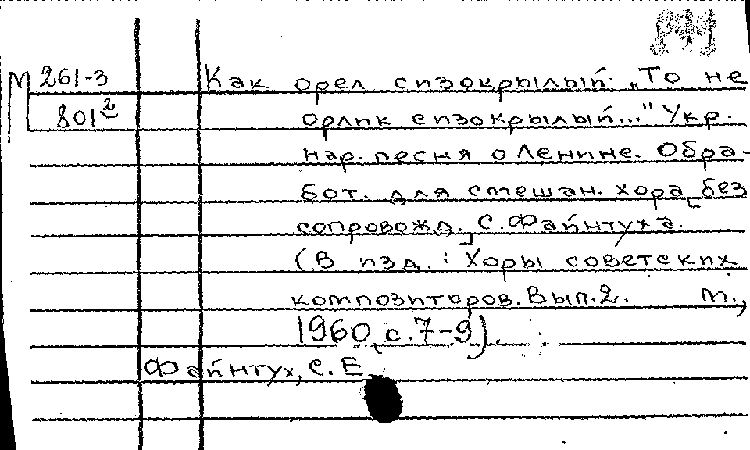 М 261-3 Как орел сизокрылый: „То не
801² орлик сизокрылый..." Укр.
нар. песня о Ленине. Обра-
бот. для смешан. хора без
сопровожд. С. Файнтуха.
(В изд.: Хоры советских
композиторов. Вып. 2. М.,
1960, с. 7-9).
Файнтух, С. Е.